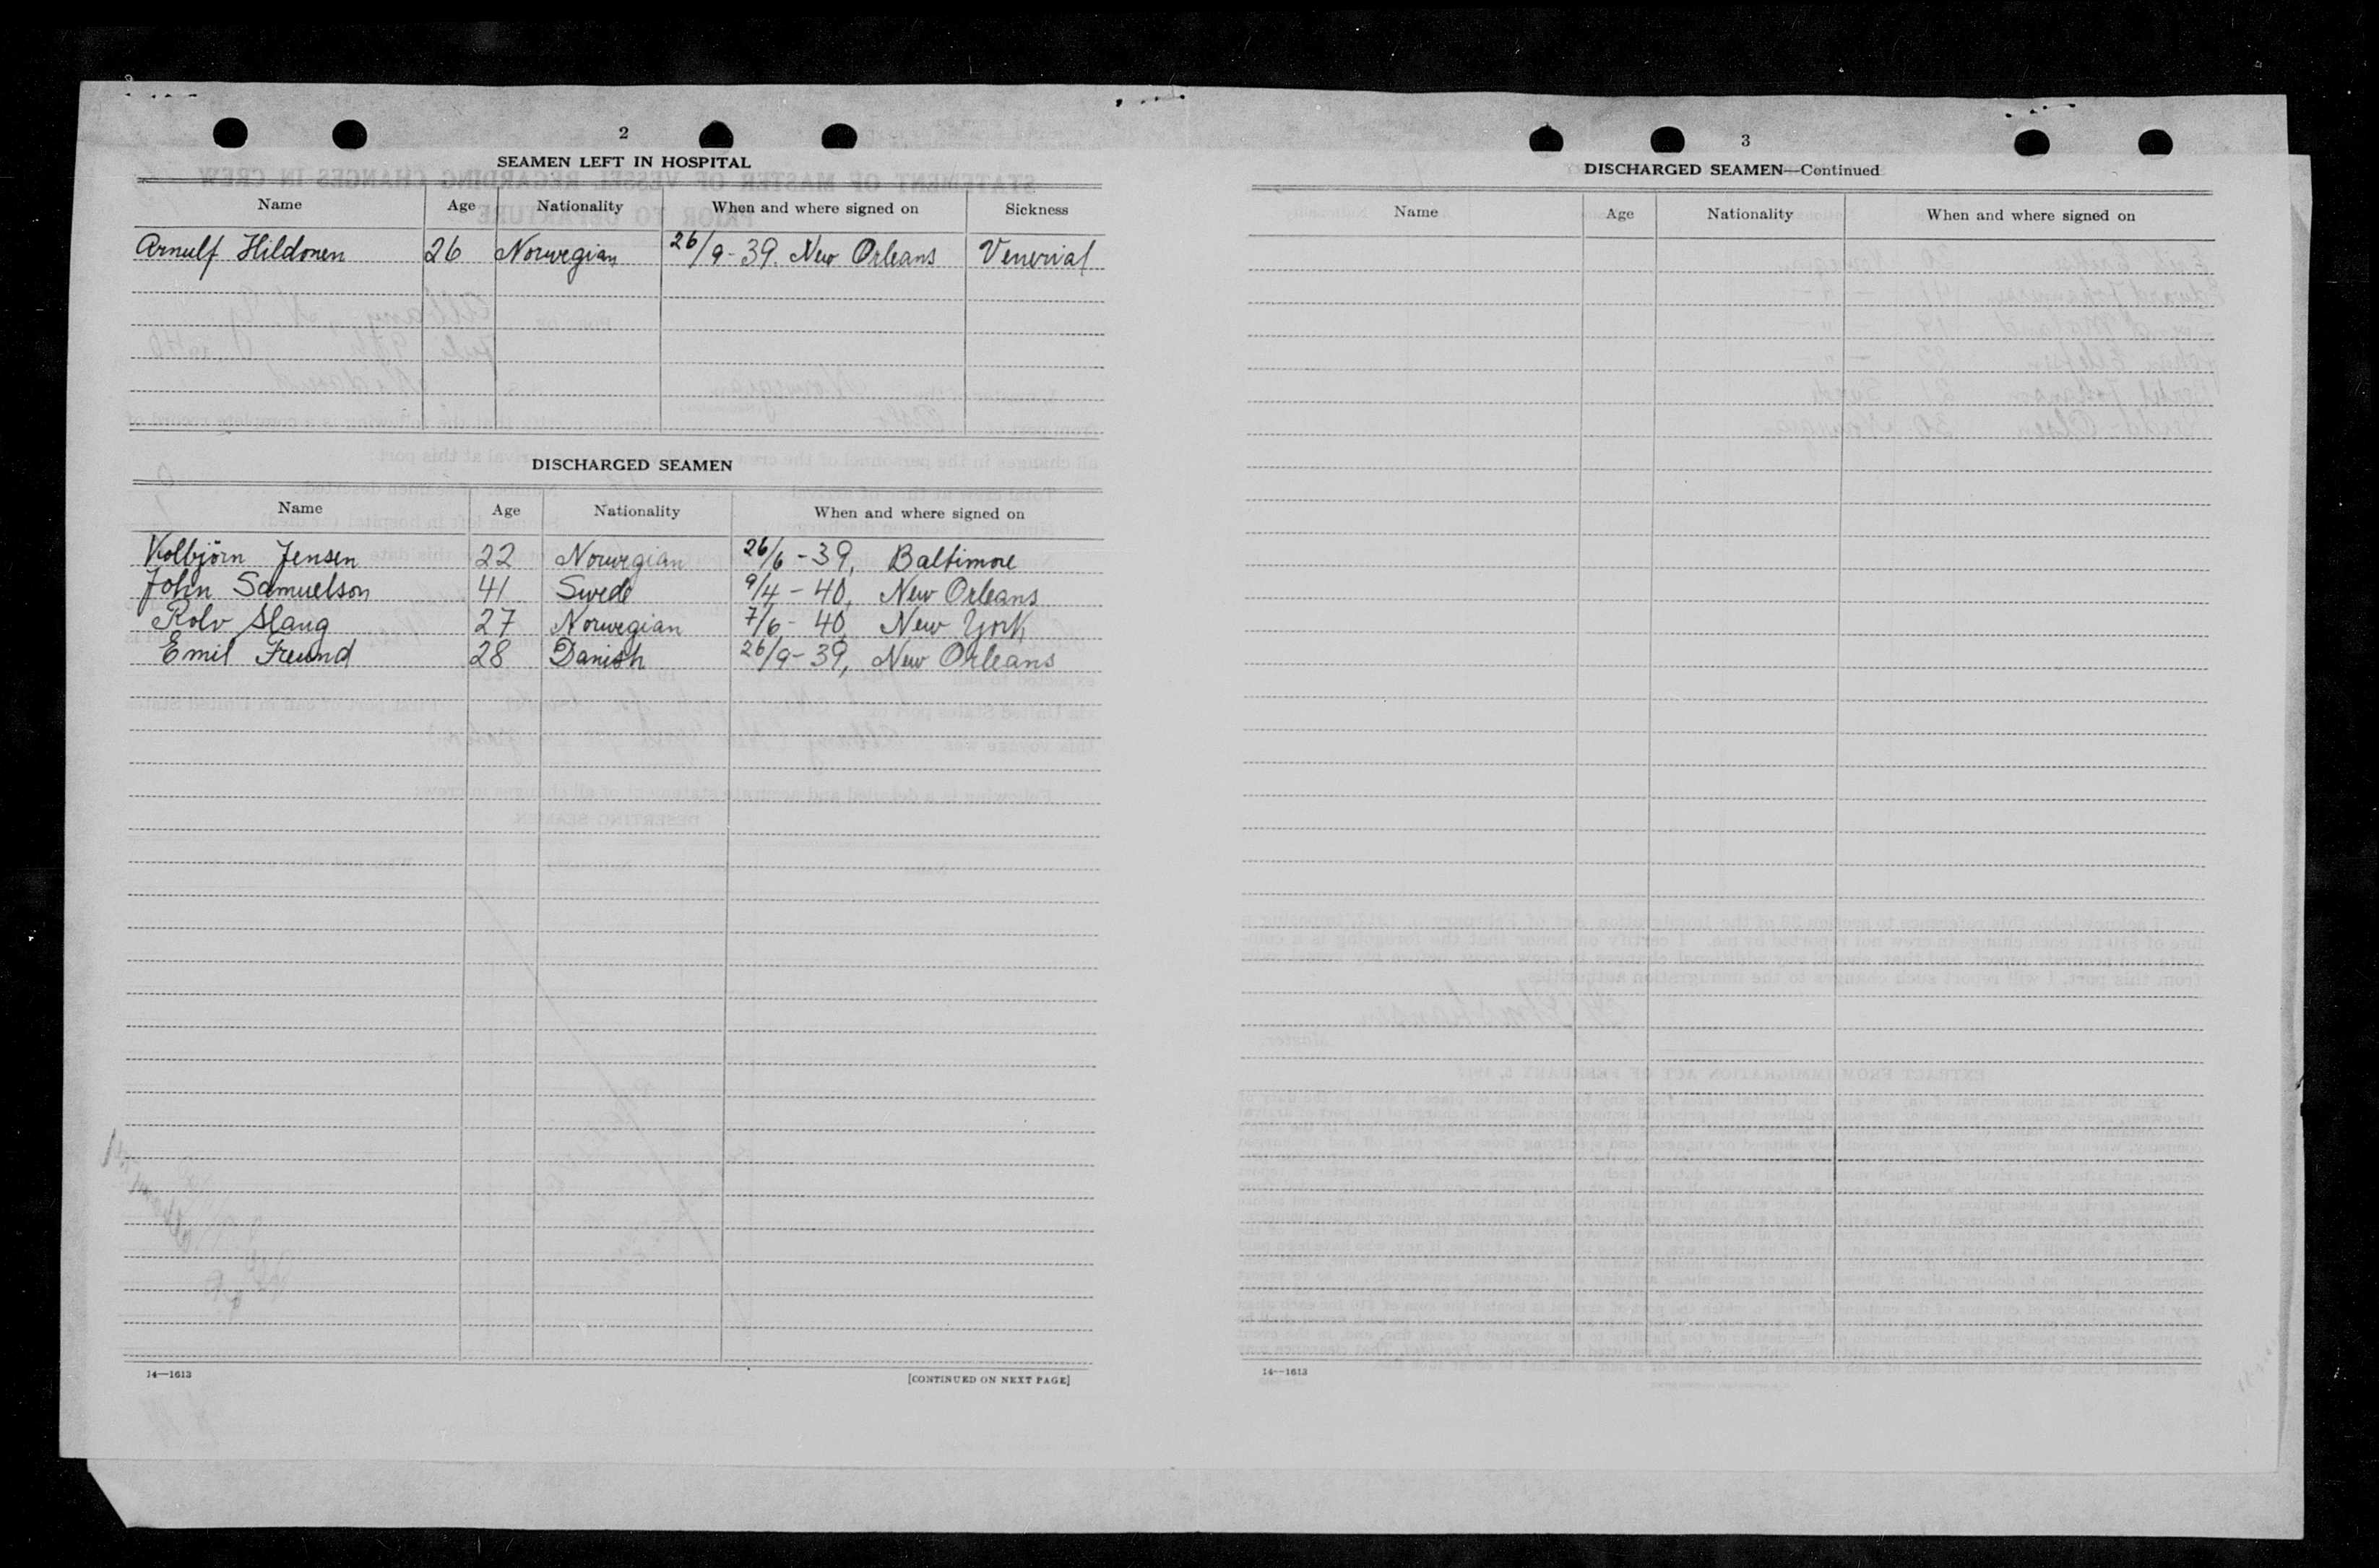 2
SEAMEN LEFT IN HOSPITAL
Name Age Nationality When and where signed on Sickness
Arnulf Hildonen 26 Norwegian 26/9-39. New Orleans Venerial
DISCHARGED SEAMEN
Name Age Nationality When and where signed on
Kolbjörn Jensen 22 Norwegian 26/6-39, Baltimore
John Samuelson 41 Swede 9/4-40, New Orleans
Rolv Slang 27 Norwegian 7/6-40, New York
Emil Freund 28 Danish 26/9-39, New Orleans
14—1613
[CONTINUED ON NEXT PAGE]
3
DISCHARGED SEAMEN—Continued
Name Age Nationality When and where signed on
14—1613